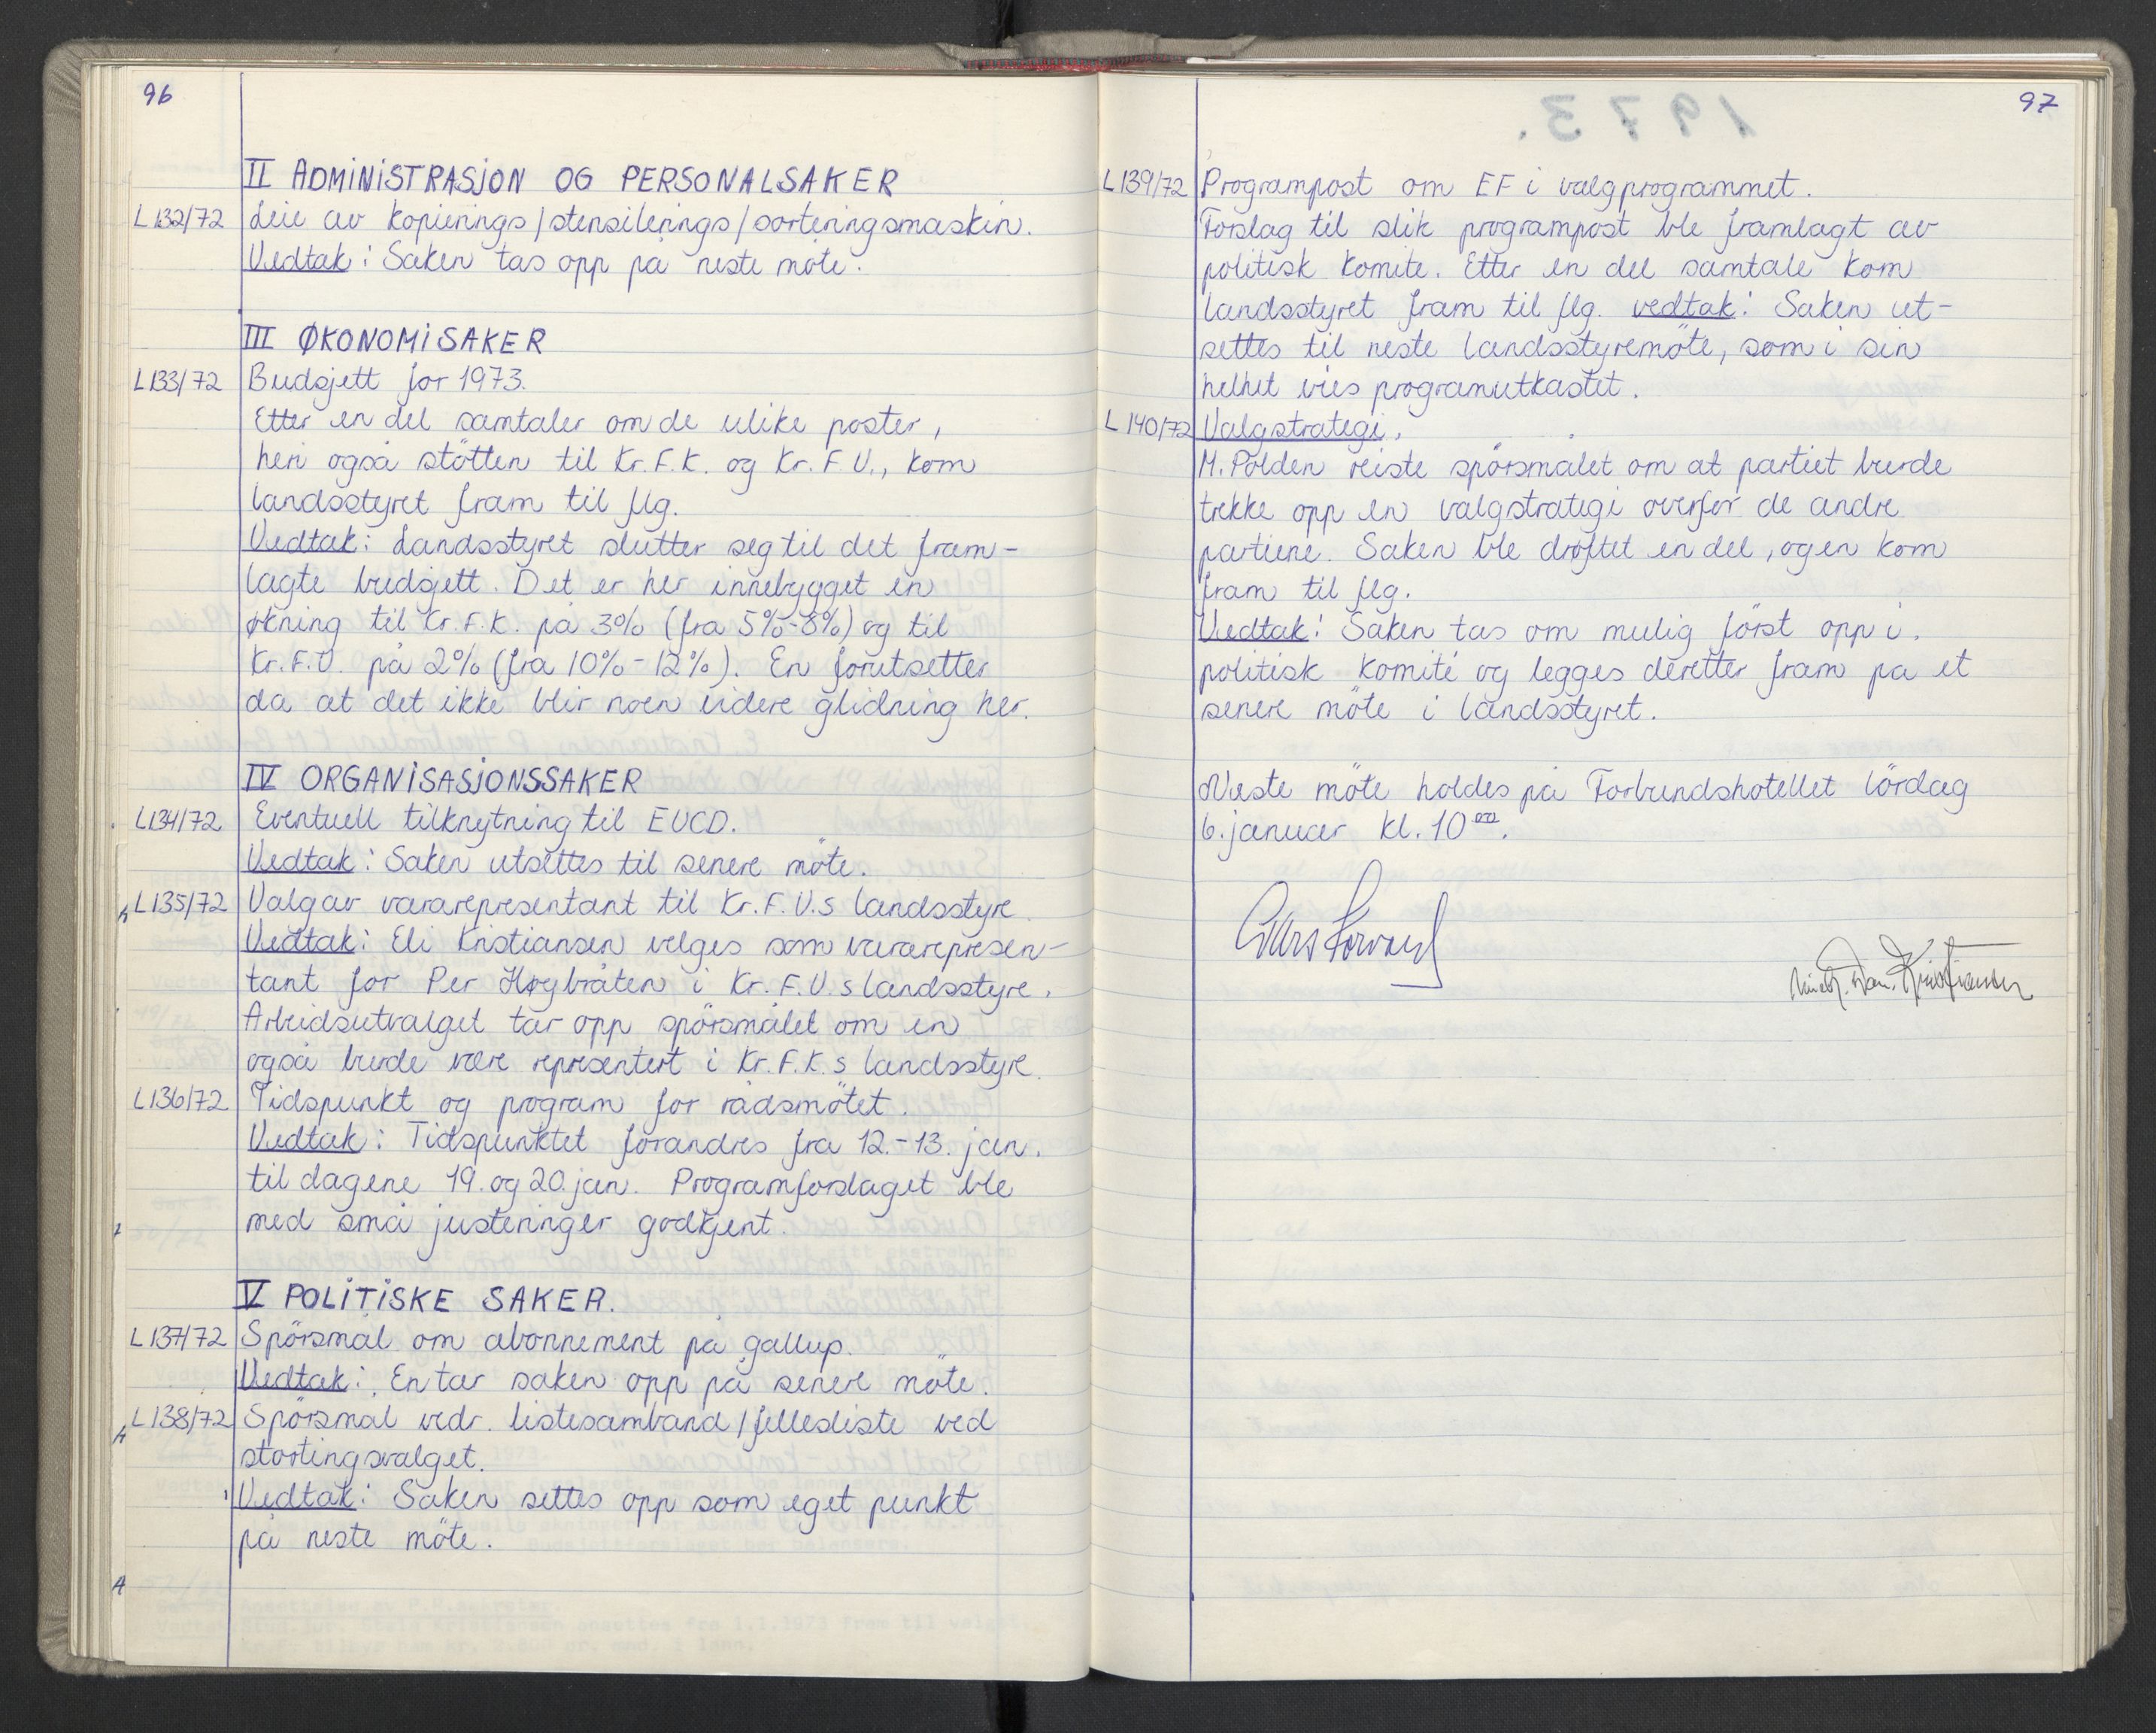 96
II ADMINISTRASJON OG PERSONALSAKER
L132/72 Leie av kopierings/stensilerings/sorteringsmaskin.
Vedtak: Saken tas opp på neste möte.
III ØKONOMISAKER
L133/72 Budsjett for 1973.
Etter en del samtaler om de ulike poster,
heri også stötten til Kr.F.K. og Kr.F.U., kom
landsstyret fram til flg.
Vedtak: Landsstyret slutter seg til det fram-
lagte budsjett. Det er her innebygget en
økning til Kr.F.K. på 3% (fra 5%-8%) og til
Kr.F.U. på 2% (fra 10%-12%). En forutsetter
da at det ikke blir noen videre glidning her.
IV ORGANISASJONSSAKER
L134/72 Eventuell tilknytning til EUCD.
Vedtak: Saken utsettes til senere möte.
L135/72 Valg av vararepresentant til Kr.F.U.s landsstyre.
Vedtak: Eli Kristiansen velges som vararepresen-
tant for Per Høybråten i Kr.F.U.s landsstyre.
Arbeidsutvalget tar opp spörsmålet om en
også burde være representert i Kr.F.K.s landsstyre.
L136/72 Tidspunkt og program for rådsmötet.
Vedtak: Tidspunktet forandres fra 12.-13. jan.
til dagene 19. og 20. jan. Programforslaget ble
med små justeringer godkjent.
V POLITISKE SAKER.
L137/72 Spörsmål om abonnement på gallup.
Vedtak: En tar saken opp på senere möte.
L138/72 Spörsmål vedr. listesamband/fellesliste ved
stortingsvalget.
Vedtak: Saken settes opp som eget punkt
på neste möte.
97
L139/72 Programpost om EF i valgprogrammet.
Forslag til slik programpost ble framlagt av
politisk komite. Etter en del samtale kom
landsstyret fram til flg. vedtak: Saken ut-
settes til neste landsstyremöte, som i sin
helhet vies programutkastet.
L140/72 Valgstrategi.
M. Polden reiste spörsmålet om at partiet burde
trekke opp en valgstrategi overfor de andre
partiene. Saken ble dröftet en del, og en kom
fram til flg.
Vedtak: Saken tas om mulig först opp i
politisk komité og legges deretter fram på et
senere möte i landsstyret.
Neste möte holdes på Forbundshotellet lördag
6. januar kl. 10⁰⁰.
Kristiansen